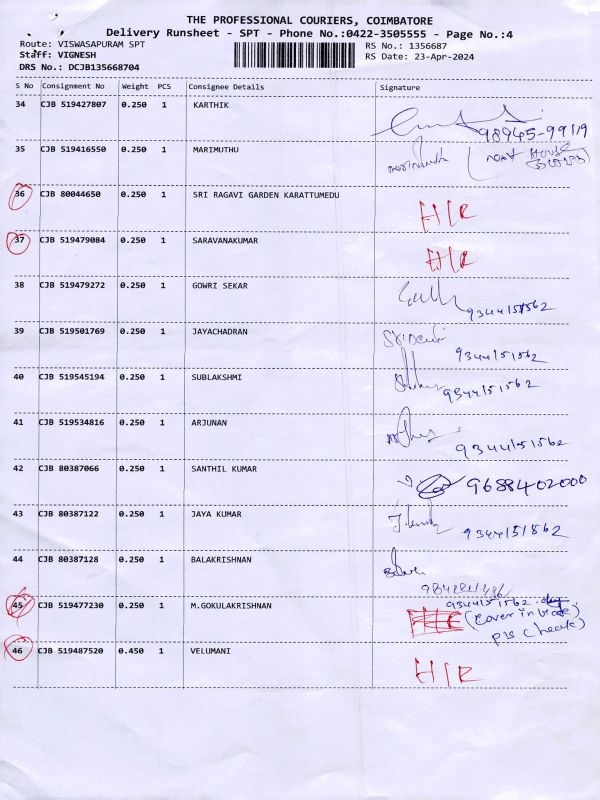 THE PROFESSIONAL COURIERS, COIMBATORE
Delivery Runsheet - SPT - Phone No.:0422-3505555 - Page No.:4
Route: VISWASAPURAM SPT RS No.: 1356687
Staff: VIGNESH RS Date: 23-Apr-2024
DRS No.: DCJB135668704
S No Consignment No Weight PCS Consignee Details Signature
34 CJB 519427807 0.250 1 KARTHIK
98945-99119
35 CJB 519416550 0.250 1 MARIMUTHU marimuthu (next House
36 CJB 80044650 0.250 1 SRI RAGAVI GARDEN KARATTUMEDU H/R
37 CJB 519479084 0.250 1 SARAVANAKUMAR H/R
38 CJB 519479272 0.250 1 GOWRI SEKAR 9344151562
39 CJB 519501769 0.250 1 JAYACHADRAN SriDevi 9344151562
40 CJB 519545194 0.250 1 SUBLAKSHMI 9344151562
41 CJB 519534816 0.250 1 ARJUNAN 9344151562
42 CJB 80387066 0.250 1 SANTHIL KUMAR 9688402000
43 CJB 80387122 0.250 1 JAYA KUMAR 9344151562
44 CJB 80387128 0.250 1 BALAKRISHNAN
45 CJB 519477230 0.250 1 M.GOKULAKRISHNAN 9344151562
(cover in
pls check)
46 CJB 519487520 0.450 1 VELUMANI H/R